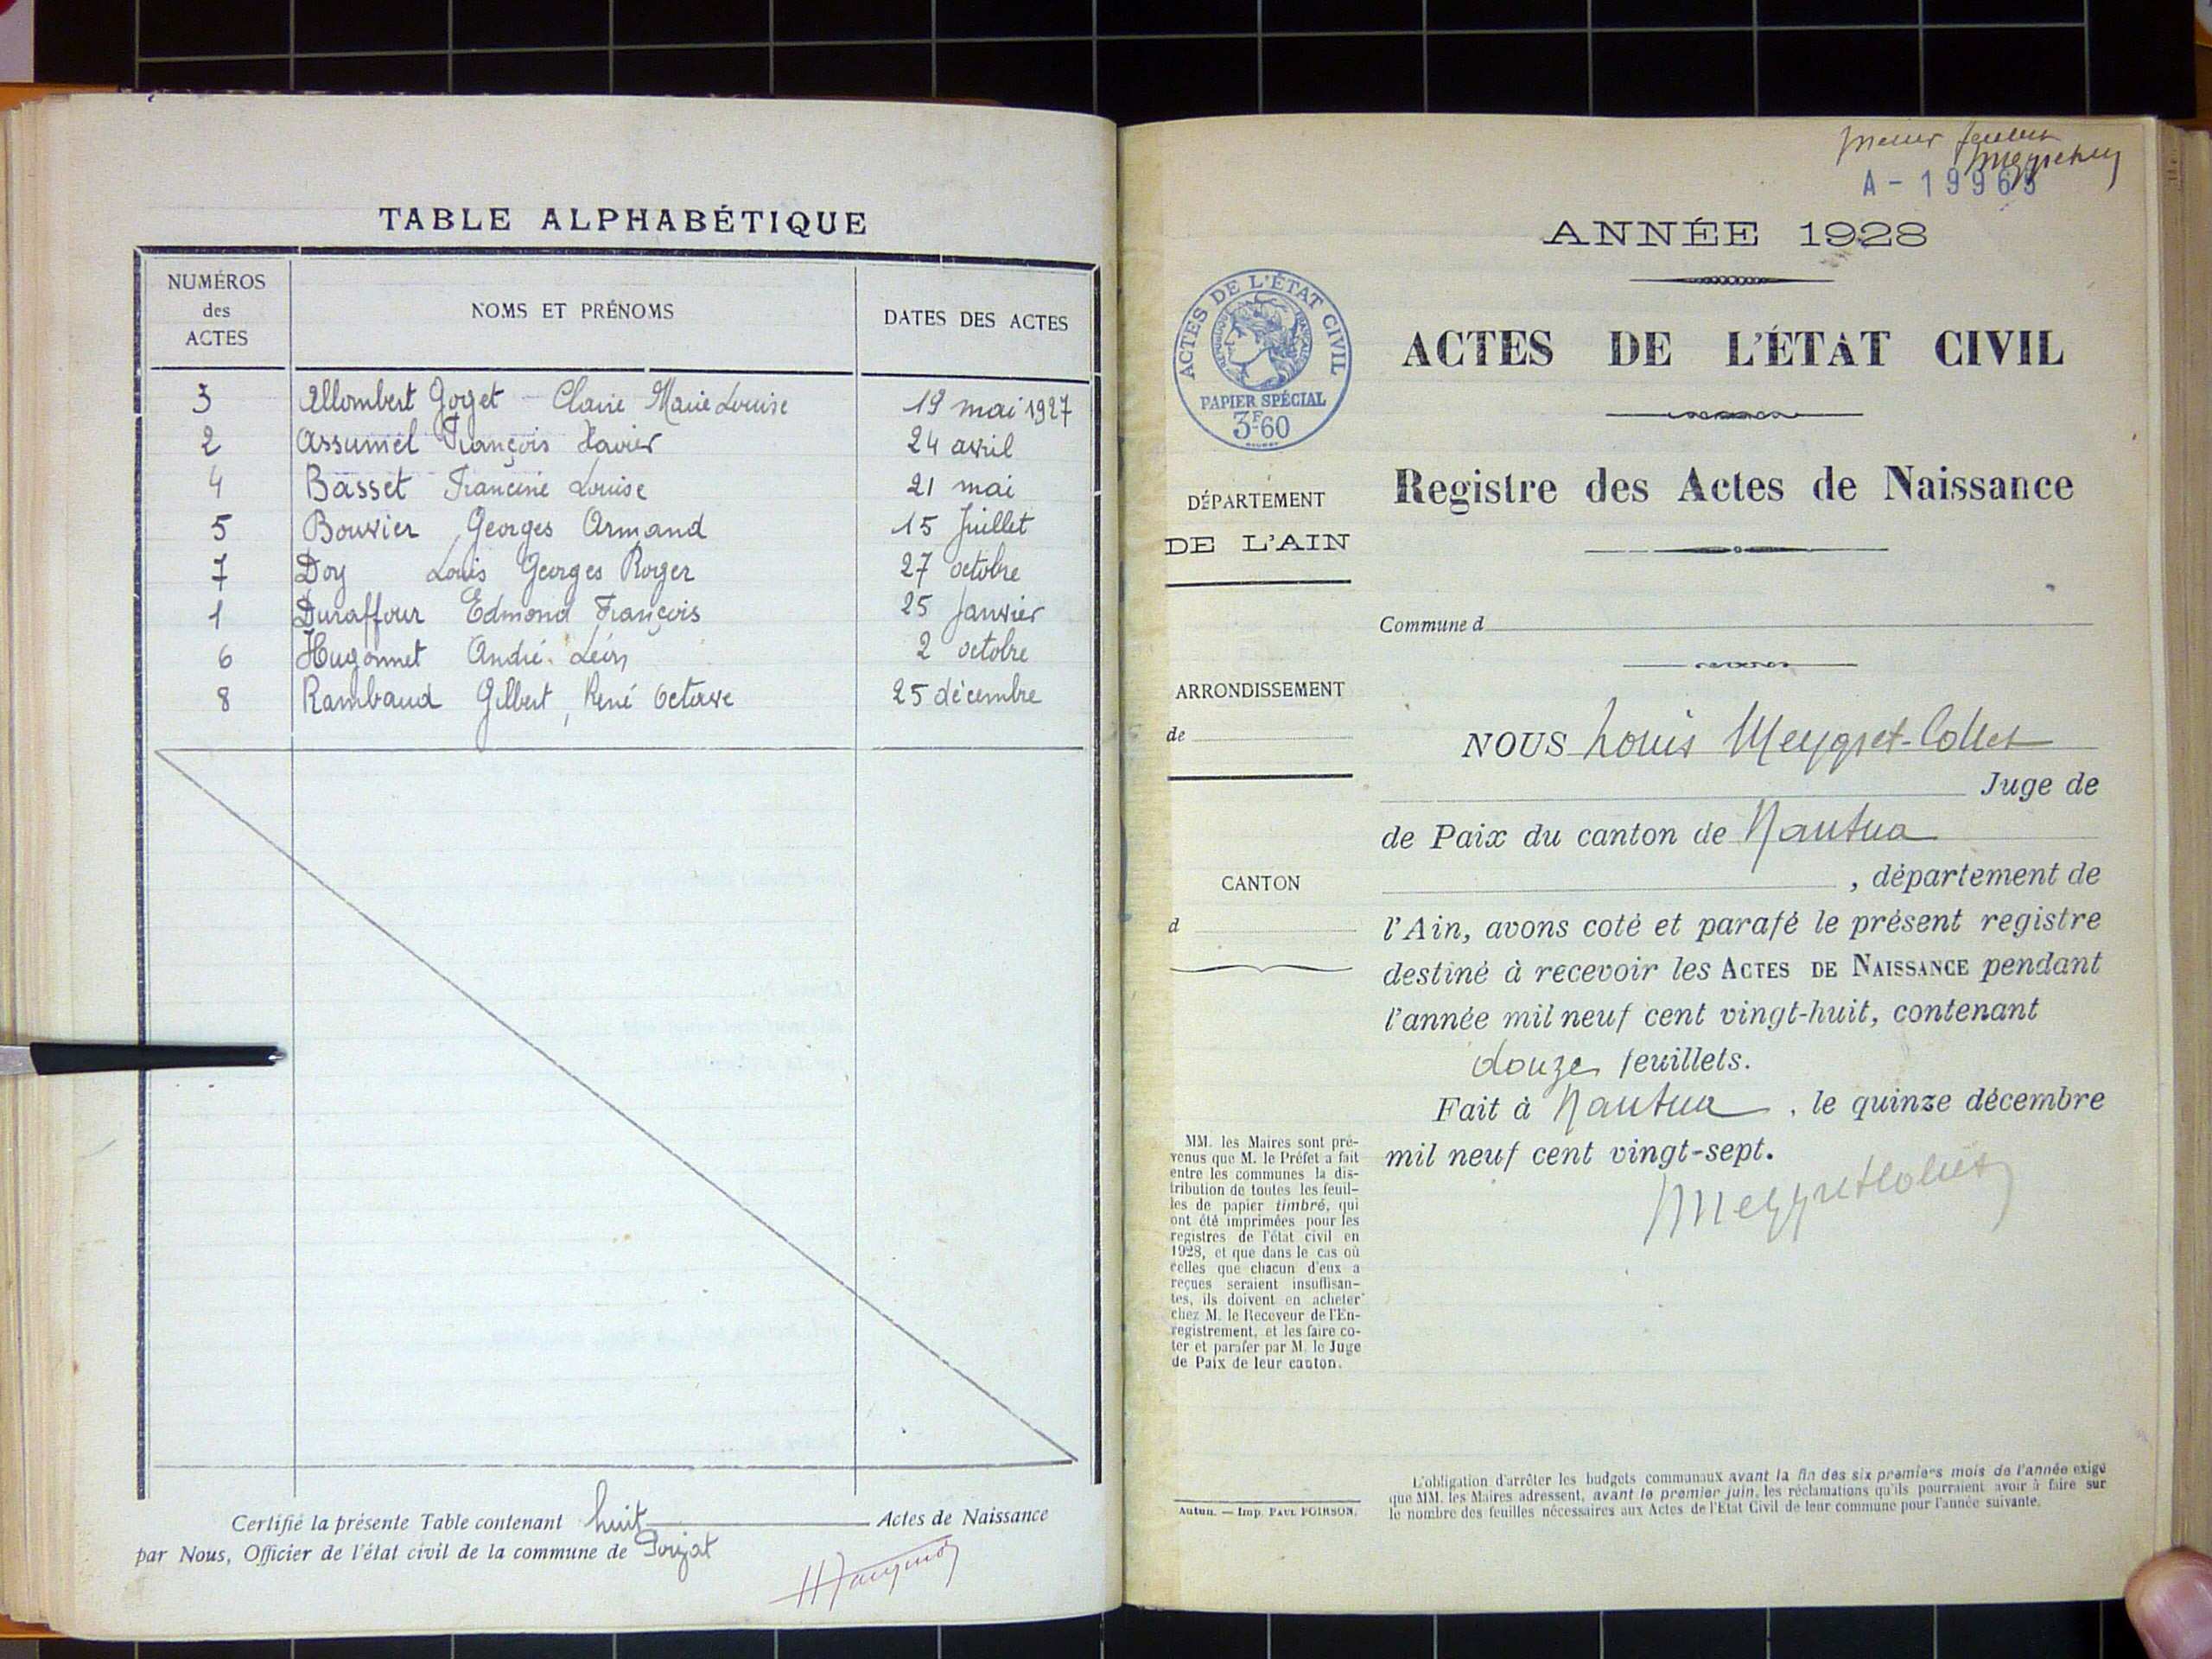 TABLE ALPHABÉTIQUE
NUMÉROS des ACTES
NOMS ET PRÉNOMS
DATES DES ACTES
3 Allombert Goget Claire Marie Louise 19 mai 1927
2 Assumel François Xavier 24 avril
4 Basset Francine Louise 21 mai
5 Bouvier Georges Armand 15 Juillet
7 Doy Louis Georges Roger 27 octobre
1 Duraffour Edmond François 25 Janvier
6 Hugonnet André Léon 2 octobre
8 Rambaud Gilbert, René Octave 25 décembre
Certifié la présente Table contenant huit Actes de Naissance
par Nous, Officier de l'état civil de la commune de Poizat
A - 19965
ANNÉE 1928
ACTES DE L'ÉTAT CIVIL
RÉPUBLIQUE FRANÇAISE
PAPIER SPÉCIAL
3F60
ACTES DE L'ÉTAT CIVIL
Registre des Actes de Naissance
DÉPARTEMENT
DE L'AIN
Commune d
ARRONDISSEMENT
de
CANTON
d
NOUS Louis Meygret-Collet
Juge de
de Paix du canton de Nantua
, département de
l'Ain, avons coté et parafé le présent registre
destiné à recevoir les ACTES DE NAISSANCE pendant
l'année mil neuf cent vingt-huit, contenant
douze feuillets.
Fait à Nantua, le quinze décembre
mil neuf cent vingt-sept.
MeygretCollet
MM. les Maires sont pré-
venus que M. le Préfet a fait
entre les communes la dis-
tribution de toutes les feuil-
les de papier timbré, qui
ont été imprimées pour les
registres de l'état civil en
1928, et que dans le cas où
celles que chacun d'eux a
reçues seraient insuffisan-
tes, ils doivent en acheter
chez M. le Receveur de l'En-
registrement, et les faire co-
ter et parafer par M. le Juge
de Paix de leur canton.
Autun. — Imp. PAUL POIRSON.
L'obligation d'arrêter les budgets communaux avant la fin des six premiers mois de l'année exige
que MM. les Maires adressent, avant le premier juin, les réclamations qu'ils pourraient avoir à faire sur
le nombre des feuilles nécessaires aux Actes de l'Etat Civil de leur commune pour l'année suivante.